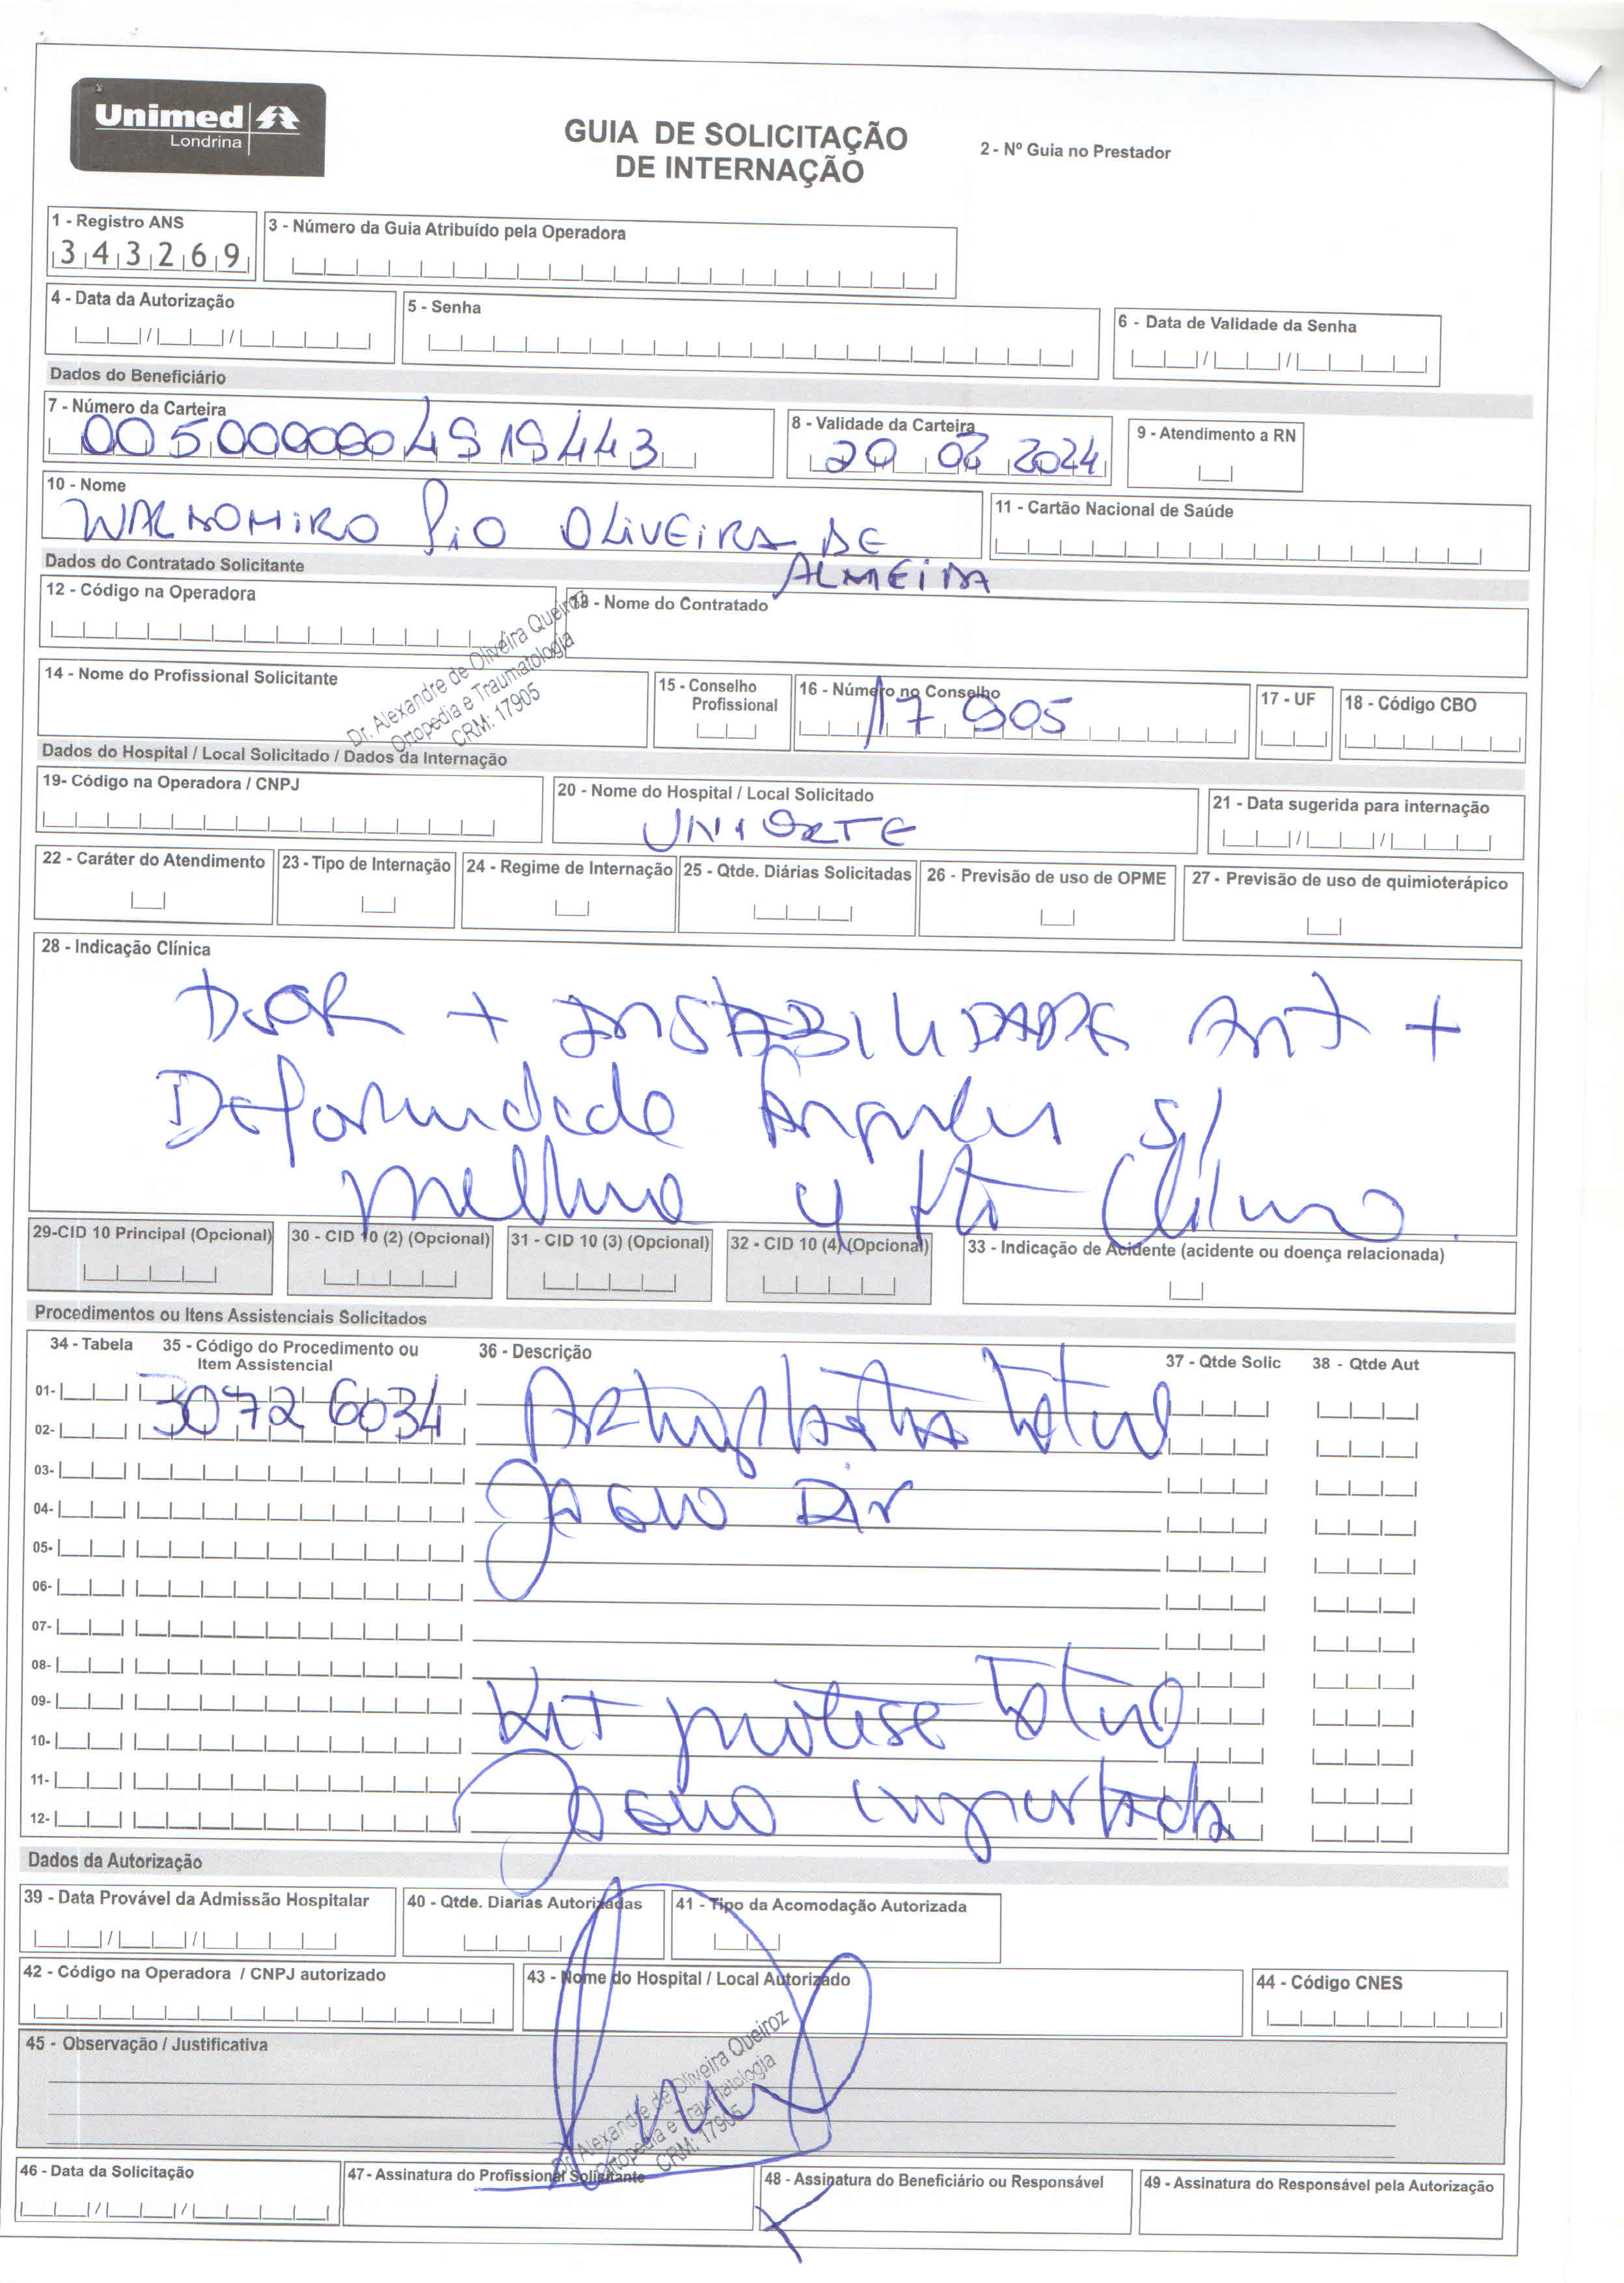 Unimed
Londrina
GUIA DE SOLICITAÇÃO
DE INTERNAÇÃO
2 - Nº Guia no Prestador
1 - Registro ANS
343269
3 - Número da Guia Atribuído pela Operadora
4 - Data da Autorização
5 - Senha
6 - Data de Validade da Senha
Dados do Beneficiário
7 - Número da Carteira
8 - Validade da Carteira
2024
9 - Atendimento a RN
10 - Nome
WALDOMIRO PIO OLIVEIRA DE
ALMEIDA
11 - Cartão Nacional de Saúde
Dados do Contratado Solicitante
12 - Código na Operadora
13 - Nome do Contratado
14 - Nome do Profissional Solicitante
Dr. Alexandre de Oliveira Queiroz
Ortopedia e Traumatologia
CRM: 17905
15 - Conselho
Profissional
16 - Número no Conselho
17905
17 - UF
18 - Código CBO
Dados do Hospital / Local Solicitado / Dados da Internação
19- Código na Operadora / CNPJ
20 - Nome do Hospital / Local Solicitado
UNIORTE
21 - Data sugerida para internação
22 - Caráter do Atendimento
23 - Tipo de Internação
24 - Regime de Internação
25 - Qtde. Diárias Solicitadas
26 - Previsão de uso de OPME
27 - Previsão de uso de quimioterápico
28 - Indicação Clínica
DOR + INSTABILIDADE Ant +
Deformidade Angular s/
melhora tto Clínico
29-CID 10 Principal (Opcional)
30 - CID 10 (2) (Opcional)
31 - CID 10 (3) (Opcional)
32 - CID 10 (4) (Opcional)
33 - Indicação de Acidente (acidente ou doença relacionada)
Procedimentos ou Itens Assistenciais Solicitados
34 - Tabela
35 - Código do Procedimento ou
Item Assistencial
36 - Descrição
37 - Qtde Solic
38 - Qtde Aut
01-
30726034 Artroplastia total
02-
03-
Joelho Dir
04-
05-
06-
07-
08-
09-
Kit prótese total
10-
11-
Joelho importada
12-
Dados da Autorização
39 - Data Provável da Admissão Hospitalar
40 - Qtde. Diarias Autorizadas
41 - Tipo da Acomodação Autorizada
42 - Código na Operadora / CNPJ autorizado
43 - Nome do Hospital / Local Autorizado
44 - Código CNES
45 - Observação / Justificativa
Dr. Alexandre de Oliveira Queiroz
Ortopedia e Traumatologia
CRM: 17905
46 - Data da Solicitação
47 - Assinatura do Profissional Solicitante
48 - Assinatura do Beneficiário ou Responsável
X
49 - Assinatura do Responsável pela Autorização